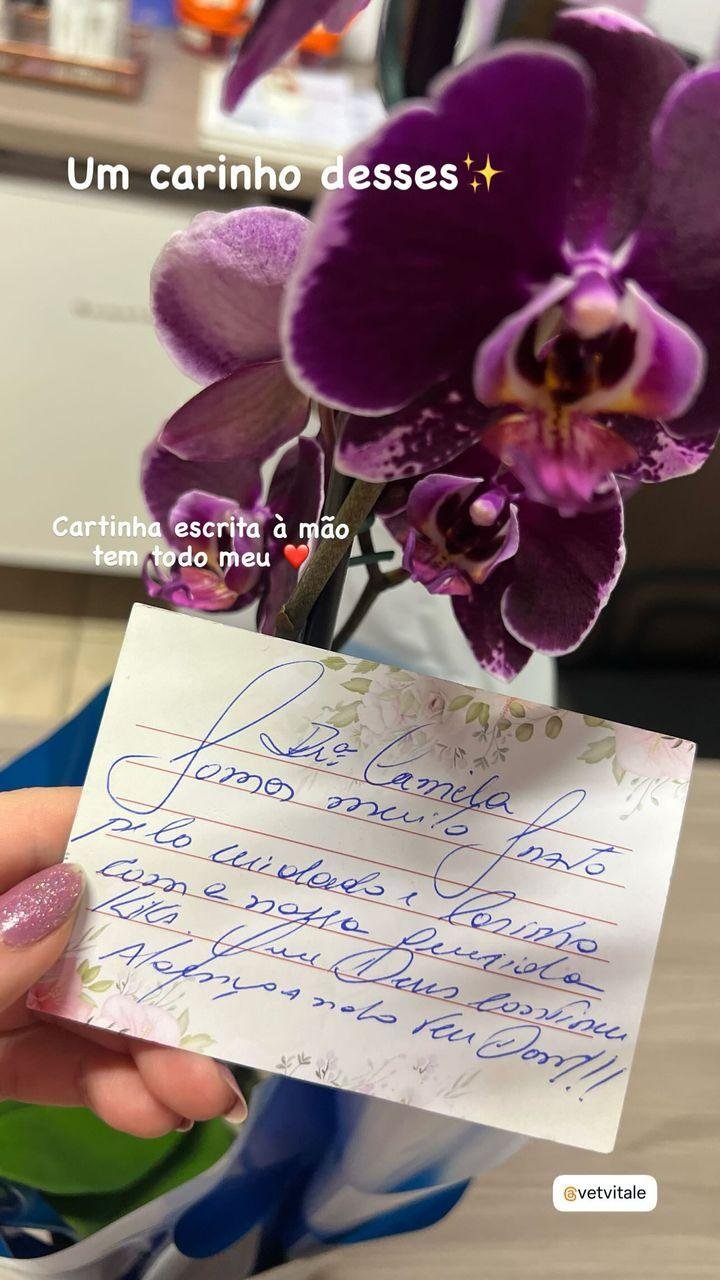 Um carinho desses✨
Cartinha escrita à mão
tem todo meu ❤️
Drª Camila
Somos muito Grato
pelo cuidado e Carinho
com a nossa querida
Kika. Que Deus continue
Abençoando seu Dom!!!
@vetvitale